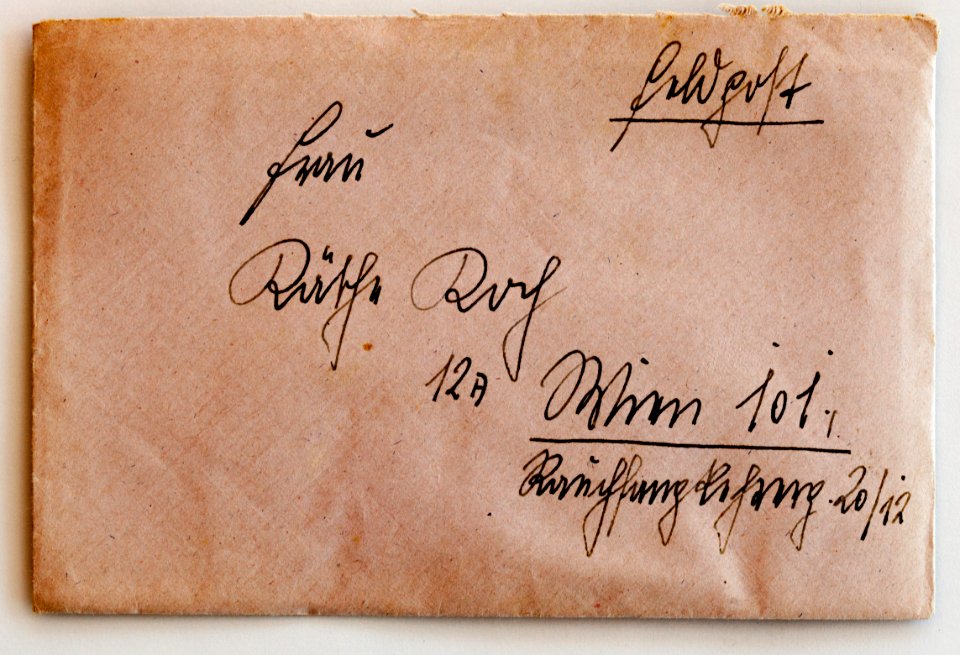 Feldpost
Frau
Käthe Koch
12A Wien 101.
Rauchfangkehrerg. 20/12